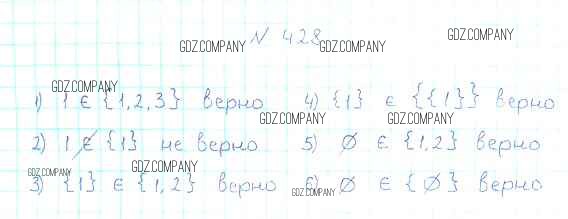 № 428
GDZ.COMPANY GDZ.COMPANY GDZ.COMPANY
GDZ.COMPANY
1) 1 ∈ {1,2,3} верно 4) {1} ∈ {{1}} верно
GDZ.COMPANY GDZ.COMPANY
2) 1 ∉ {1} не верно 5) ∅ ∈ {1,2} верно
GDZ.COMPANY GDZ.COMPANY
3) {1} ∈ {1,2} верно 6) ∅ ∈ {∅} верно
GDZ.COMPANY